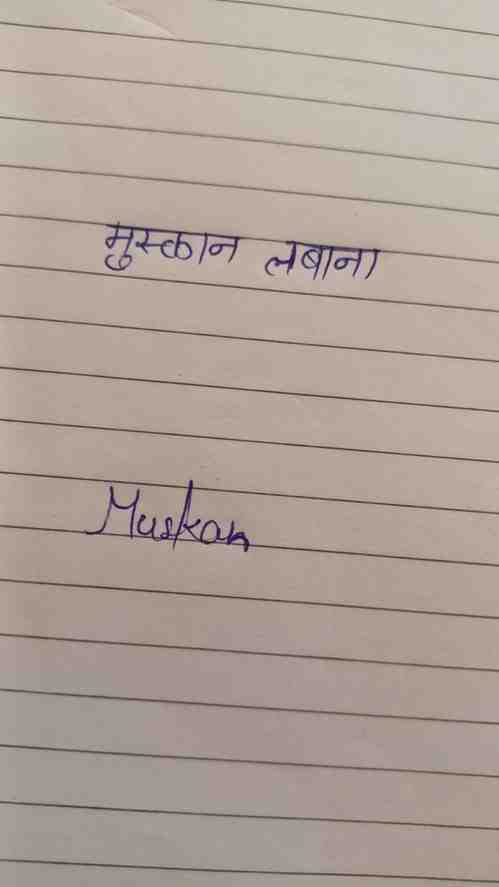 मुस्कान लबाना
Muskan